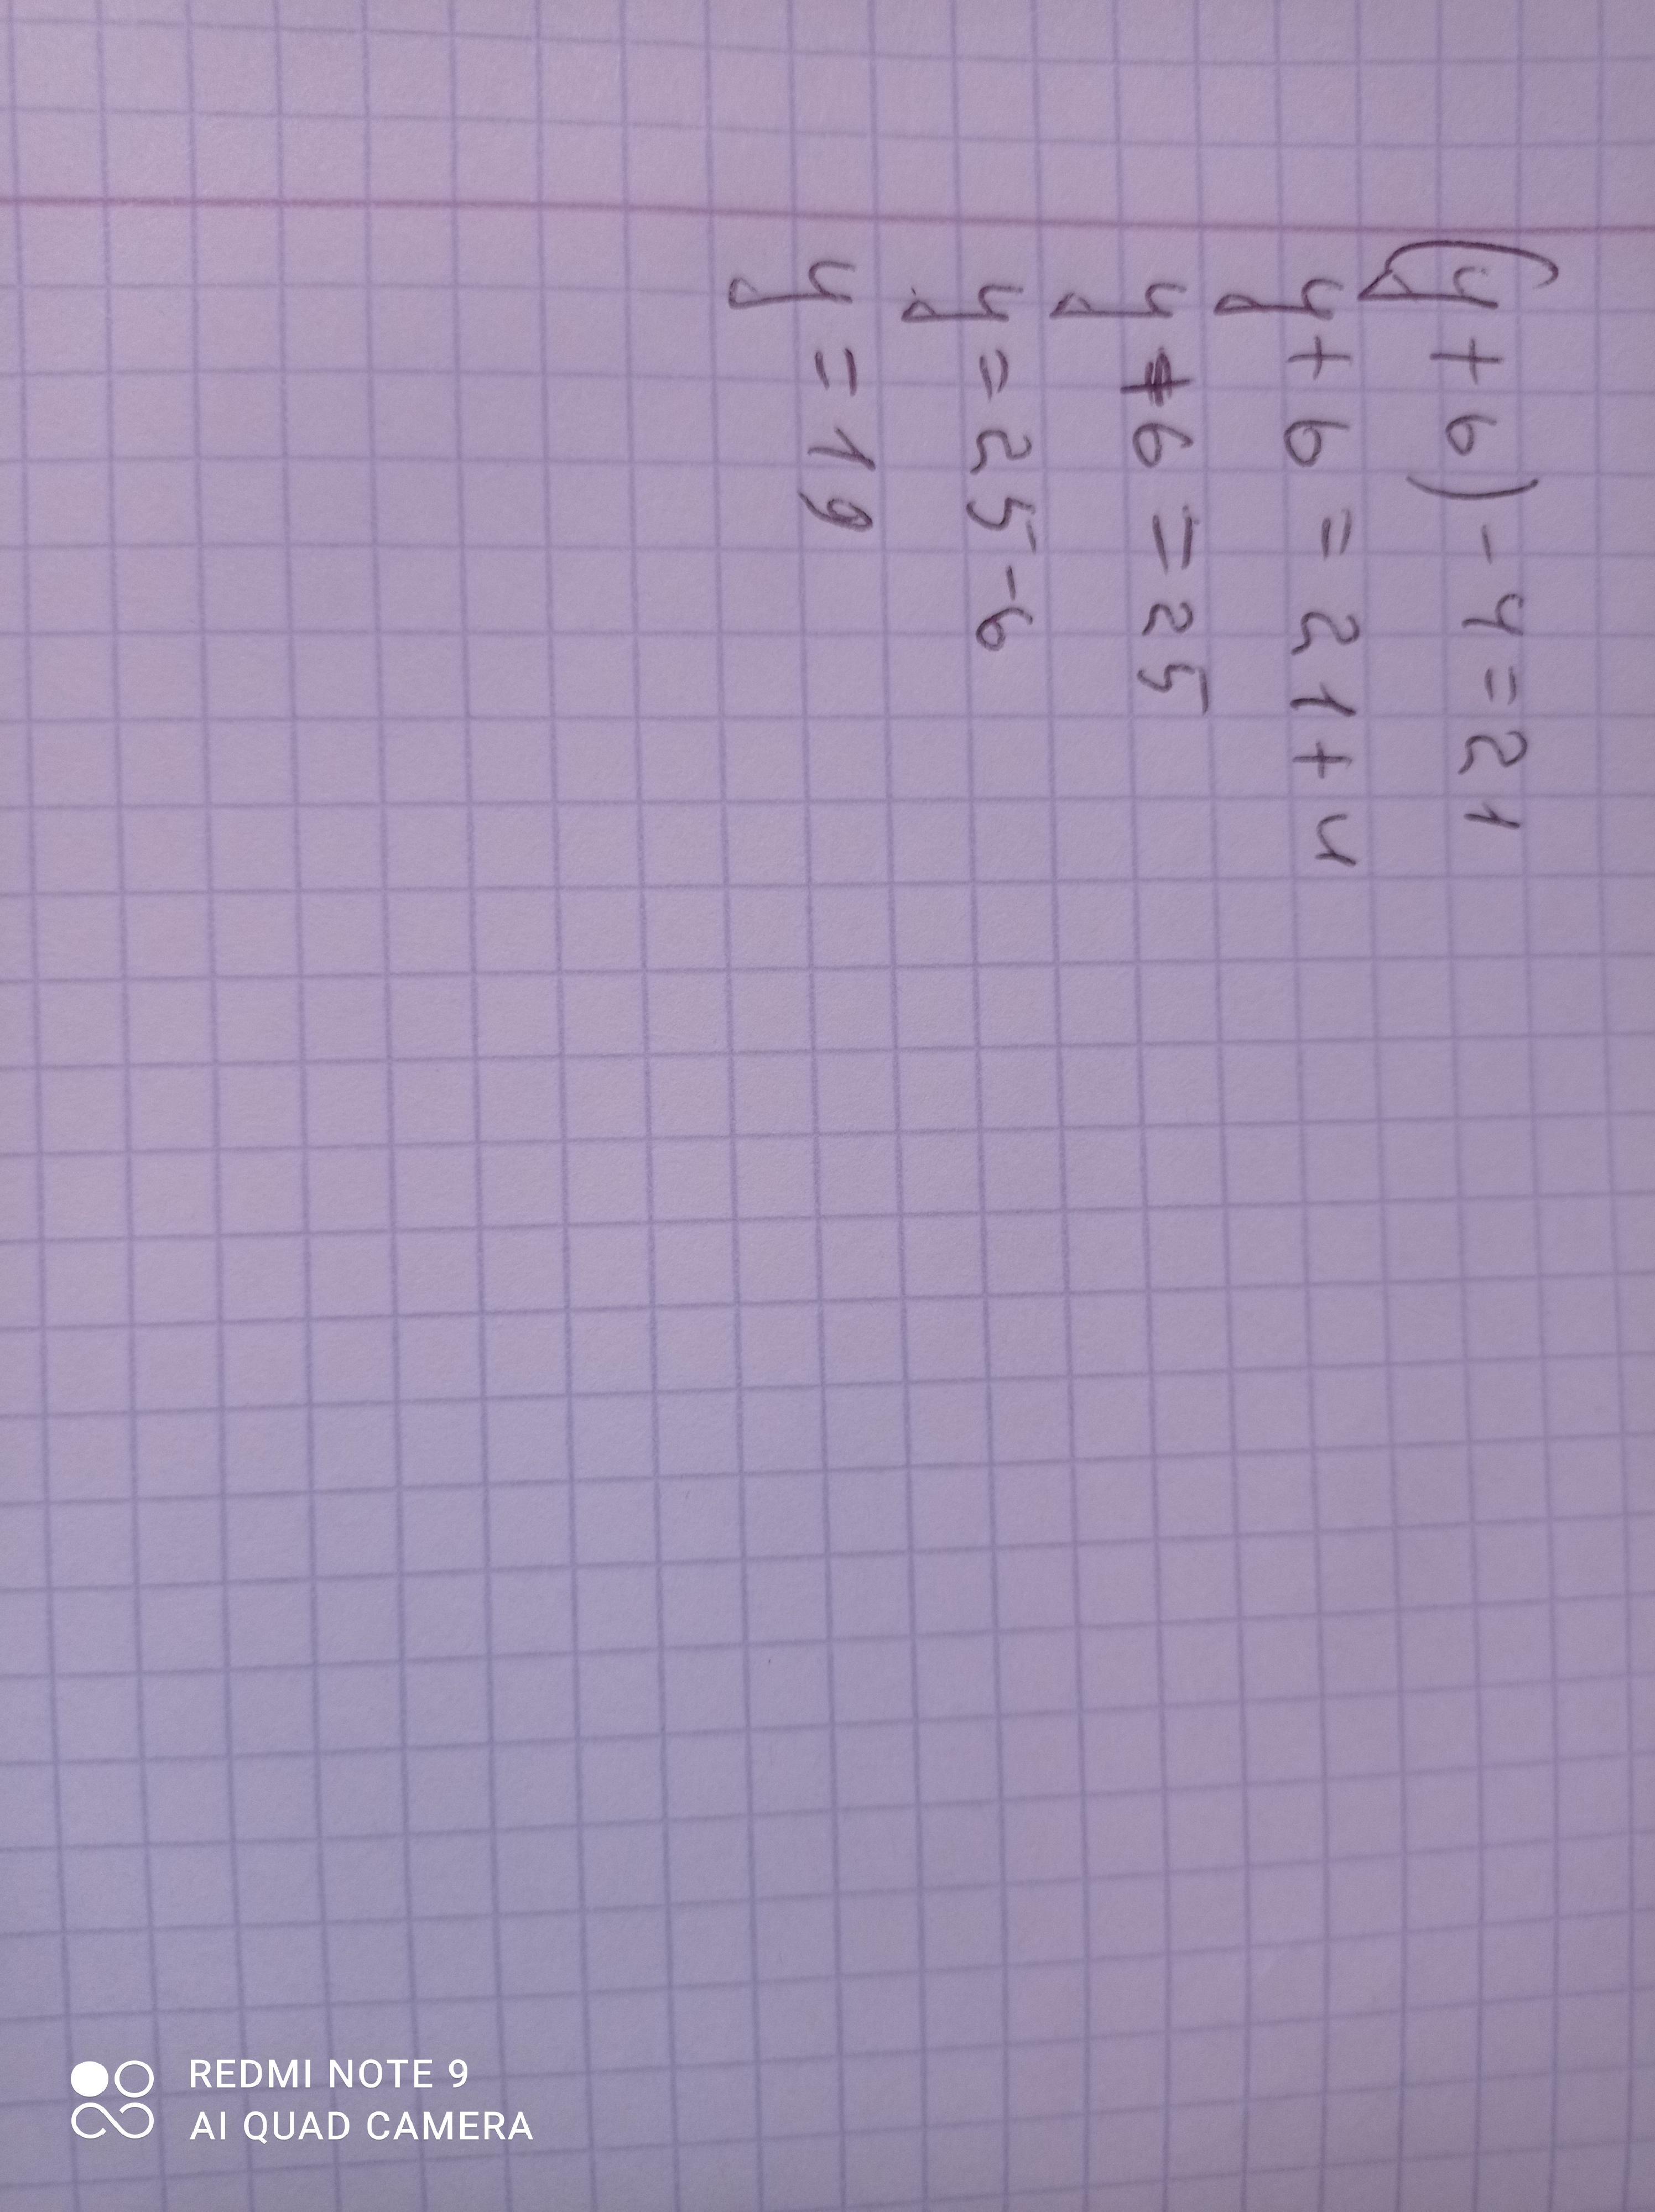 (y + 6) - 4 = 21
y + 6 = 21 + 4
y + 6 = 25
y = 25 - 6
y = 19
REDMI NOTE 9
AI QUAD CAMERA